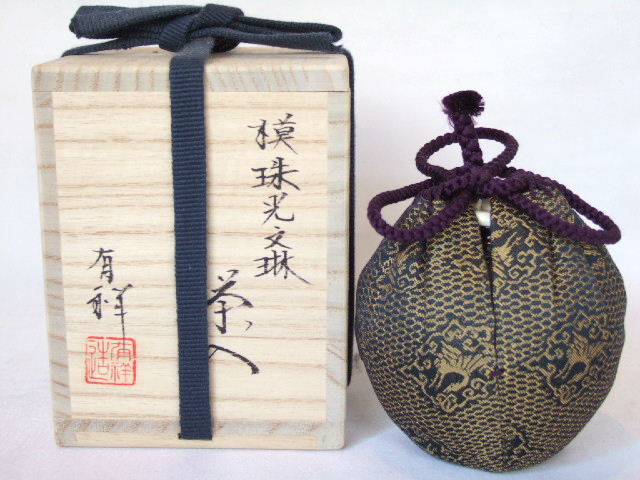 模珠光文琳
茶入
有祥
有祥造